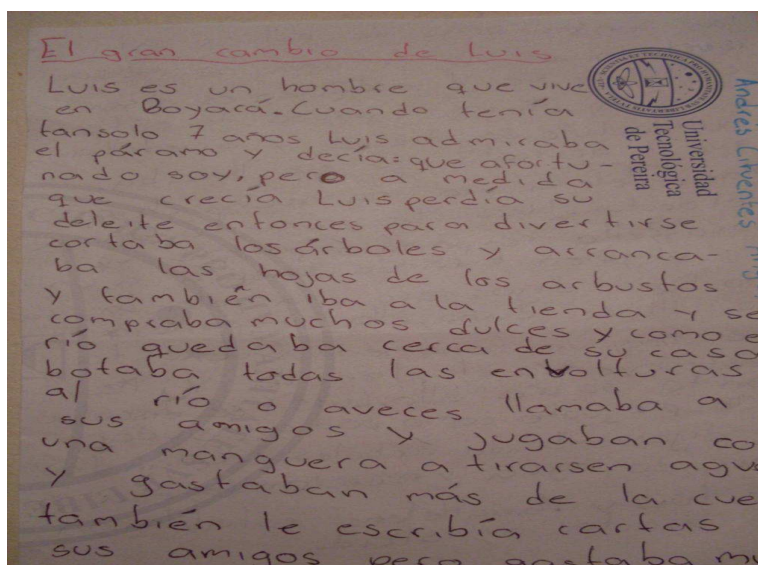 El gran cambio de Luis
Luis es un hombre que vive
en Boyacá. Cuando tenía
tansolo 7 años Luis admiraba
el páramo y decía: que afortu-
nado soy, pero a medida
que crecía Luis perdía su
deleite entonces para divertirse
cortaba los árboles y arranca-
ba las hojas de los arbustos
y también iba a la tienda y se
compraba muchos dulces y como e
río quedaba cerca de su casa
botaba todas las envolturas
al río o aveces llamaba a
sus amigos y jugaban co
una manguera a tirarsen agua
y gastaban más de la cue
también le escribía cartas
sus amigos pero gastaba mu
Universidad
Tecnológica
de Pereira
Andrés Cifuentes